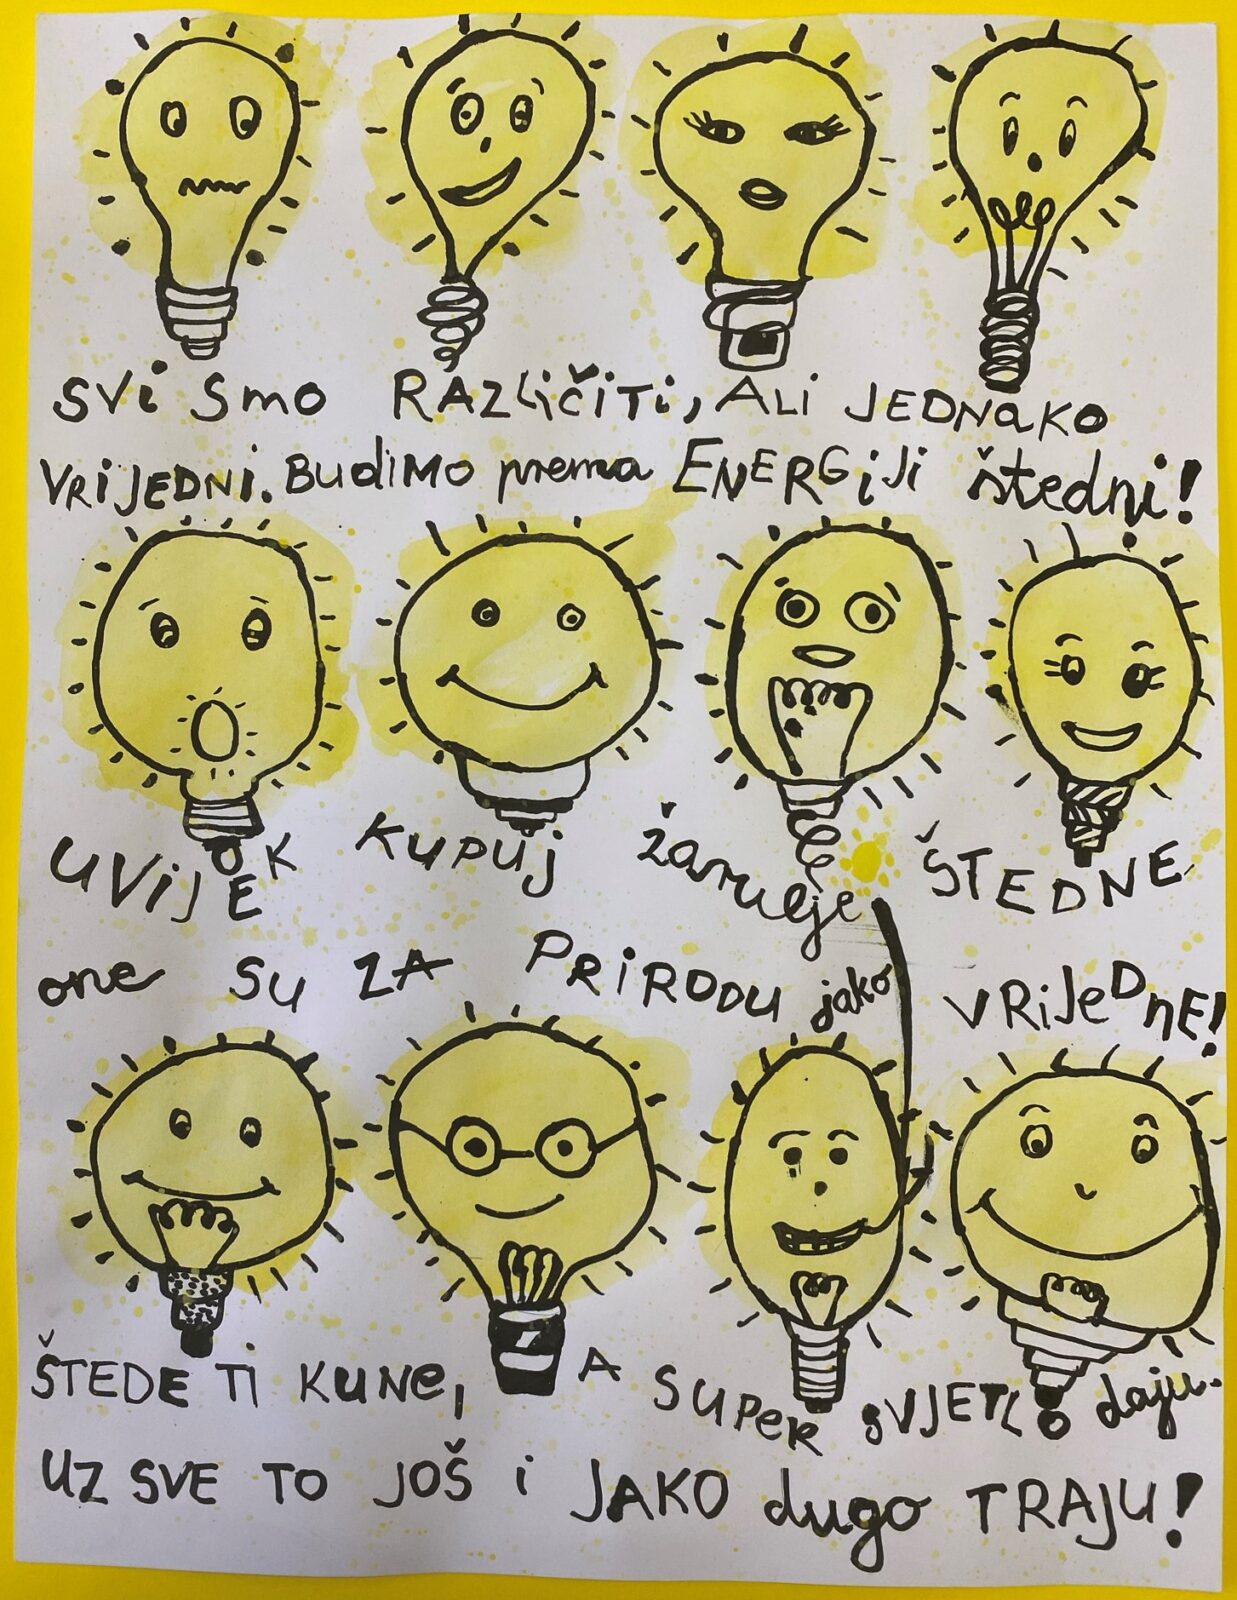 SVi SmO RAZLiČiTi, ALi JEDNAKO
VRiJEDNi. BudiMO prema ENERGiJi štedni!
UViJEK KUPUJ žarulje ŠTEDNE
one SU ZA PRiRODU jako VRiJeDnE!
ŠTEDE Ti KUNe, A SUPeR SVJETLO daju.
UZ SVE TO JOŠ i JAKO dugo TRAJU!